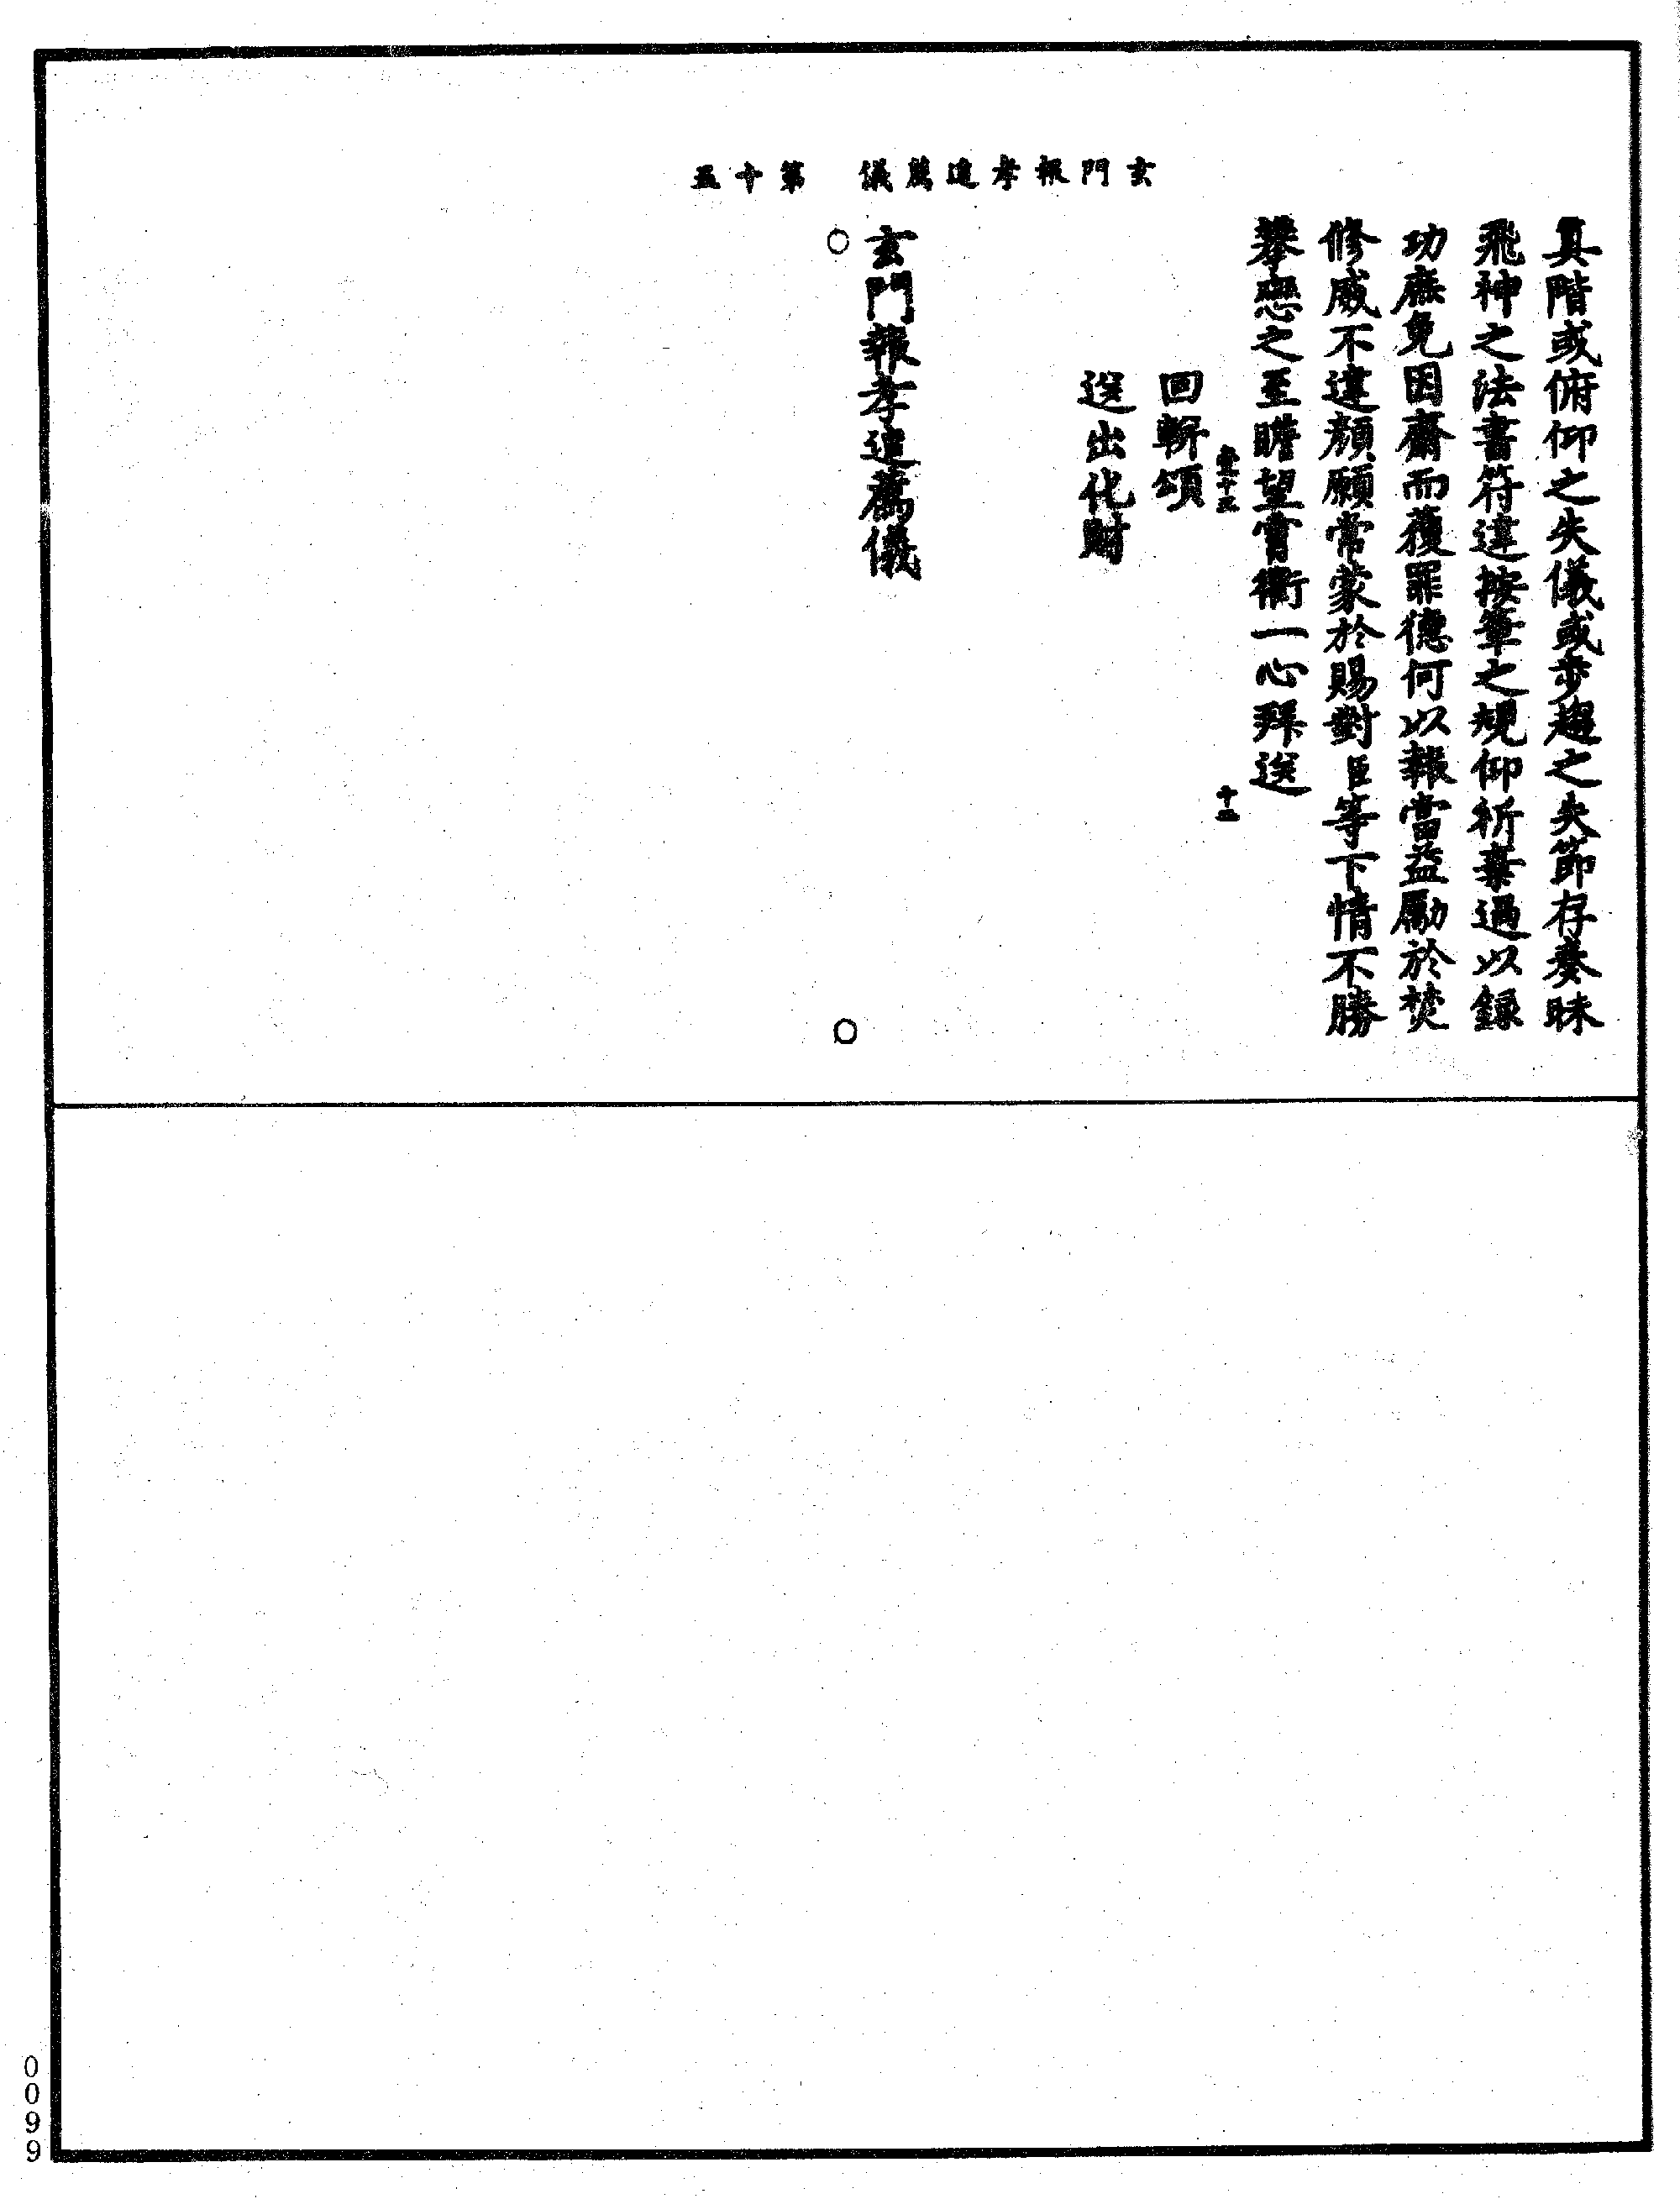 玄門報孝追薦儀　第十五
真階或俯仰之失儀或步趨之失節存奏昧
飛神之法書符違按筆之規仰祈棄過以錄
功庶免因齋而獲罪德何以報當益勵於焚
修威不違顏願常蒙於賜對臣等下情不勝
攀戀之至瞻望霄衢一心拜送
十四
回軿頌
送出化財
玄門報孝追薦儀
0099